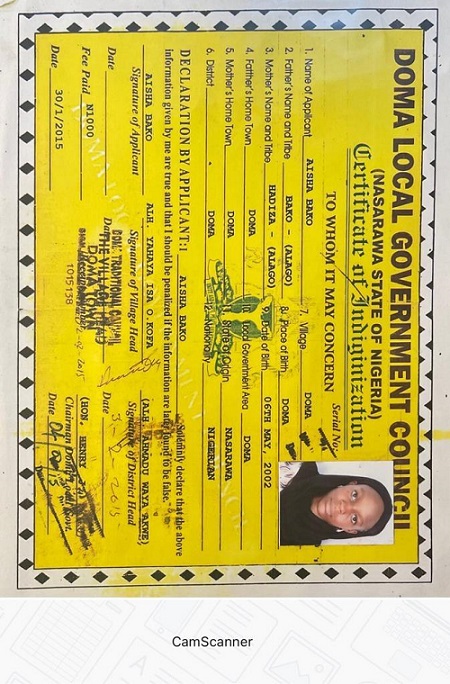 DOMA LOCAL GOVERNMENT COUNCIL
(NASARAWA STATE OF NIGERIA)
Certificate of Indiginization
TO WHOM IT MAY CONCERN
Serial No.
1. Name of Applicant AISHA BAKO
7. Village DOMA
2. Father's Name and Tribe BAKO - (ALAGO)
8. Place of Birth DOMA
3. Mother's Name and Tribe HADIZA - (ALAGO)
9. Date of Birth 06TH MAY, 2002
4. Father's Home Town DOMA
Local Government Area DOMA
5. Mother's Home Town DOMA
State of Origin NASARAWA
6. District DOMA
NIGERIAN
DECLARATION BY APPLICANT: I AISHA BAKO Solemnly declare that the above
information given by me are true and that I should be penalized if the information are found to be false.
AISHA BAKO
Signature of Applicant
ALH. YAHAYA ISA O.KOFA
Signature of Village Head
(ALH. AHMADU WAZA AKWE)
Signature of District Head
Date
Date
Fee Paid N1000
DOMA TRADITIONAL COUNCIL
THE VILLAGE HEAD
DOMA TOWN
1015138
(HON. HENRY
Chairman Doma Local Govt.
Date 30/1/2015
Date
CamScanner